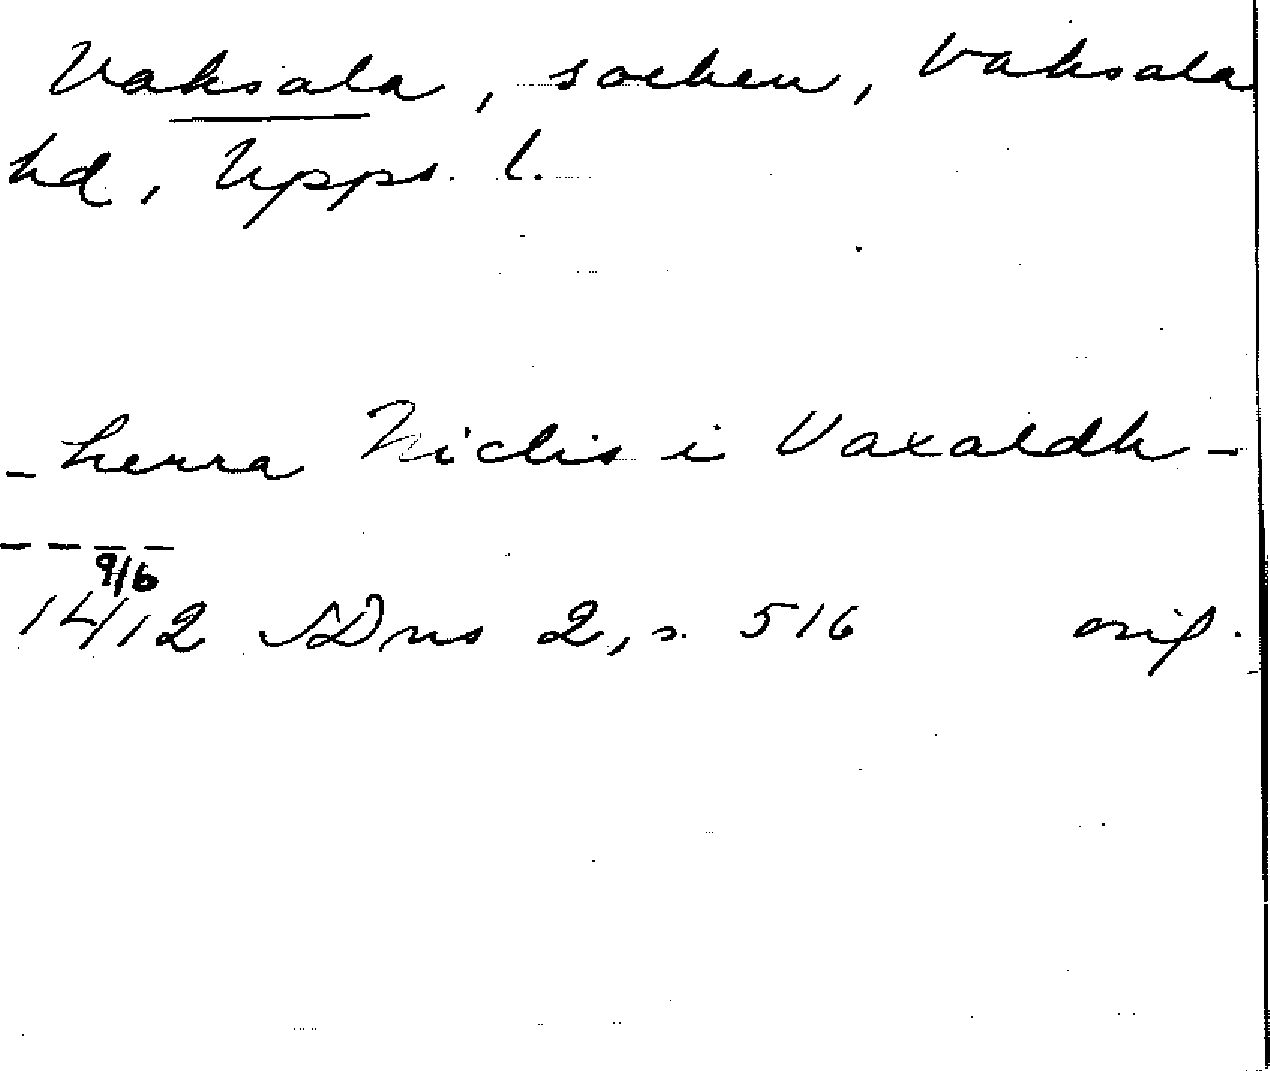 Vaksala, socken, Vaksala
hd, Upps. l.
- herra Niclis i Vaxaldh -
- - - -
9/6
1412 SDns 2, s. 516 orig.